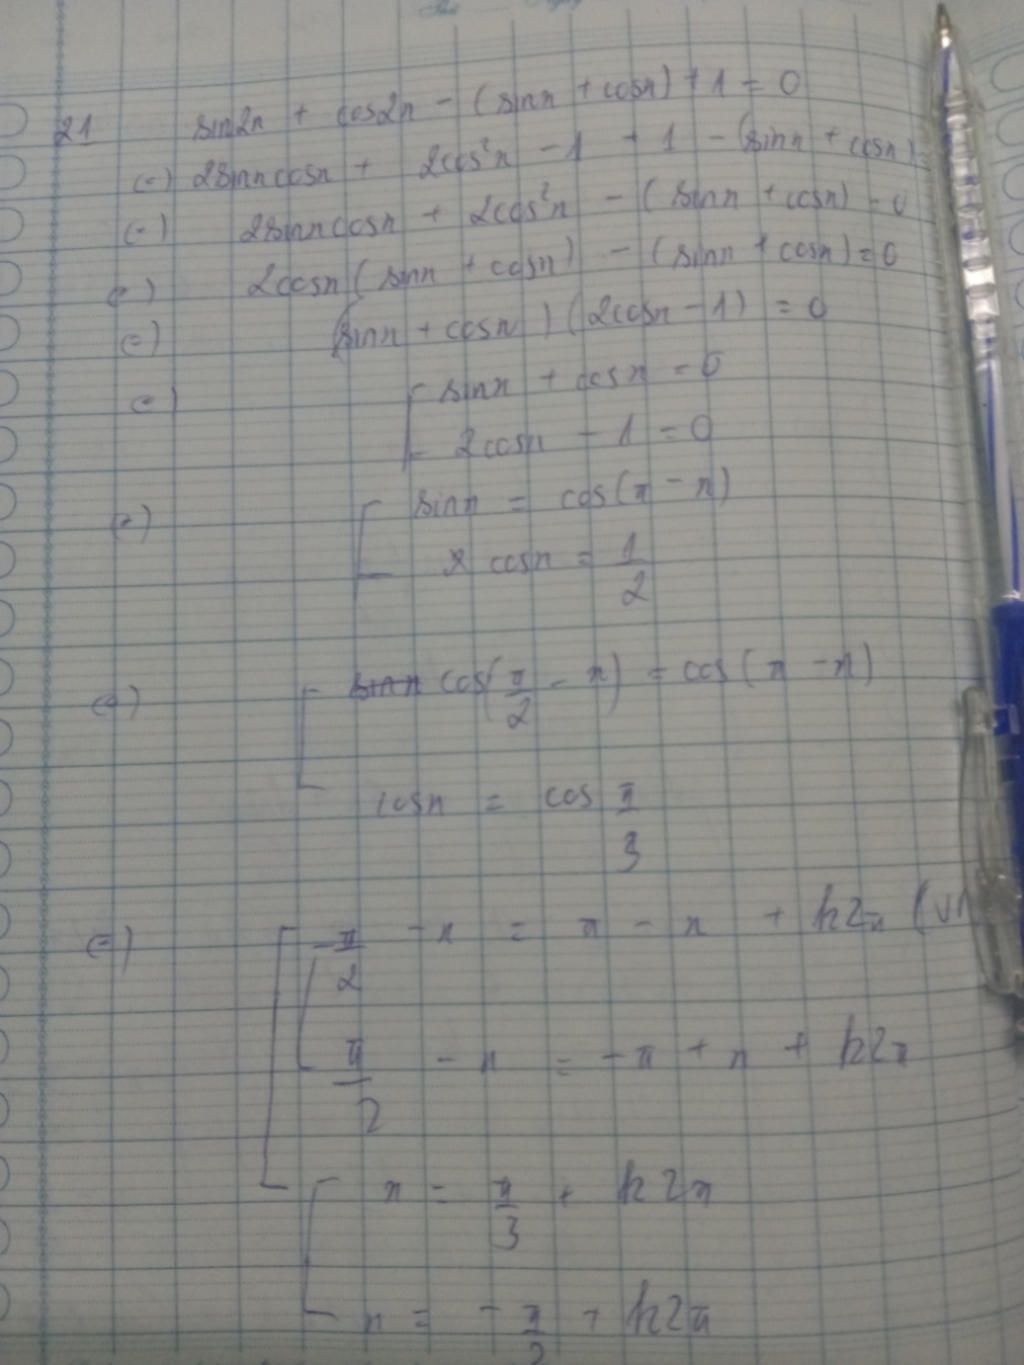 21 sin2x + cos2x - (sinx + cosx) + 1 = 0
(=) 2sinxcosx + 2cos²x - 1 + 1 - (sinx + cosx) =
(=) 2sinxcosx + 2cos²x - (sinx + cosx) = 0
(=) 2cosx(sinx + cosx) - (sinx + cosx) = 0
(=) (sinx + cosx)(2cosx - 1) = 0
(=) [ sinx + cosx = 0
2cosx - 1 = 0
(=) [ sinx = cos(π - x)
cosx = 1/2
(=) [ cos(π/2 - x) = cos(π - x)
cosx = cos π/3
(=) [ [ π/2 - x = π - x + k2π (vn
π/2 - x = -π + x + k2π
[ x = π/3 + k2π
x = -π/2 + k2π